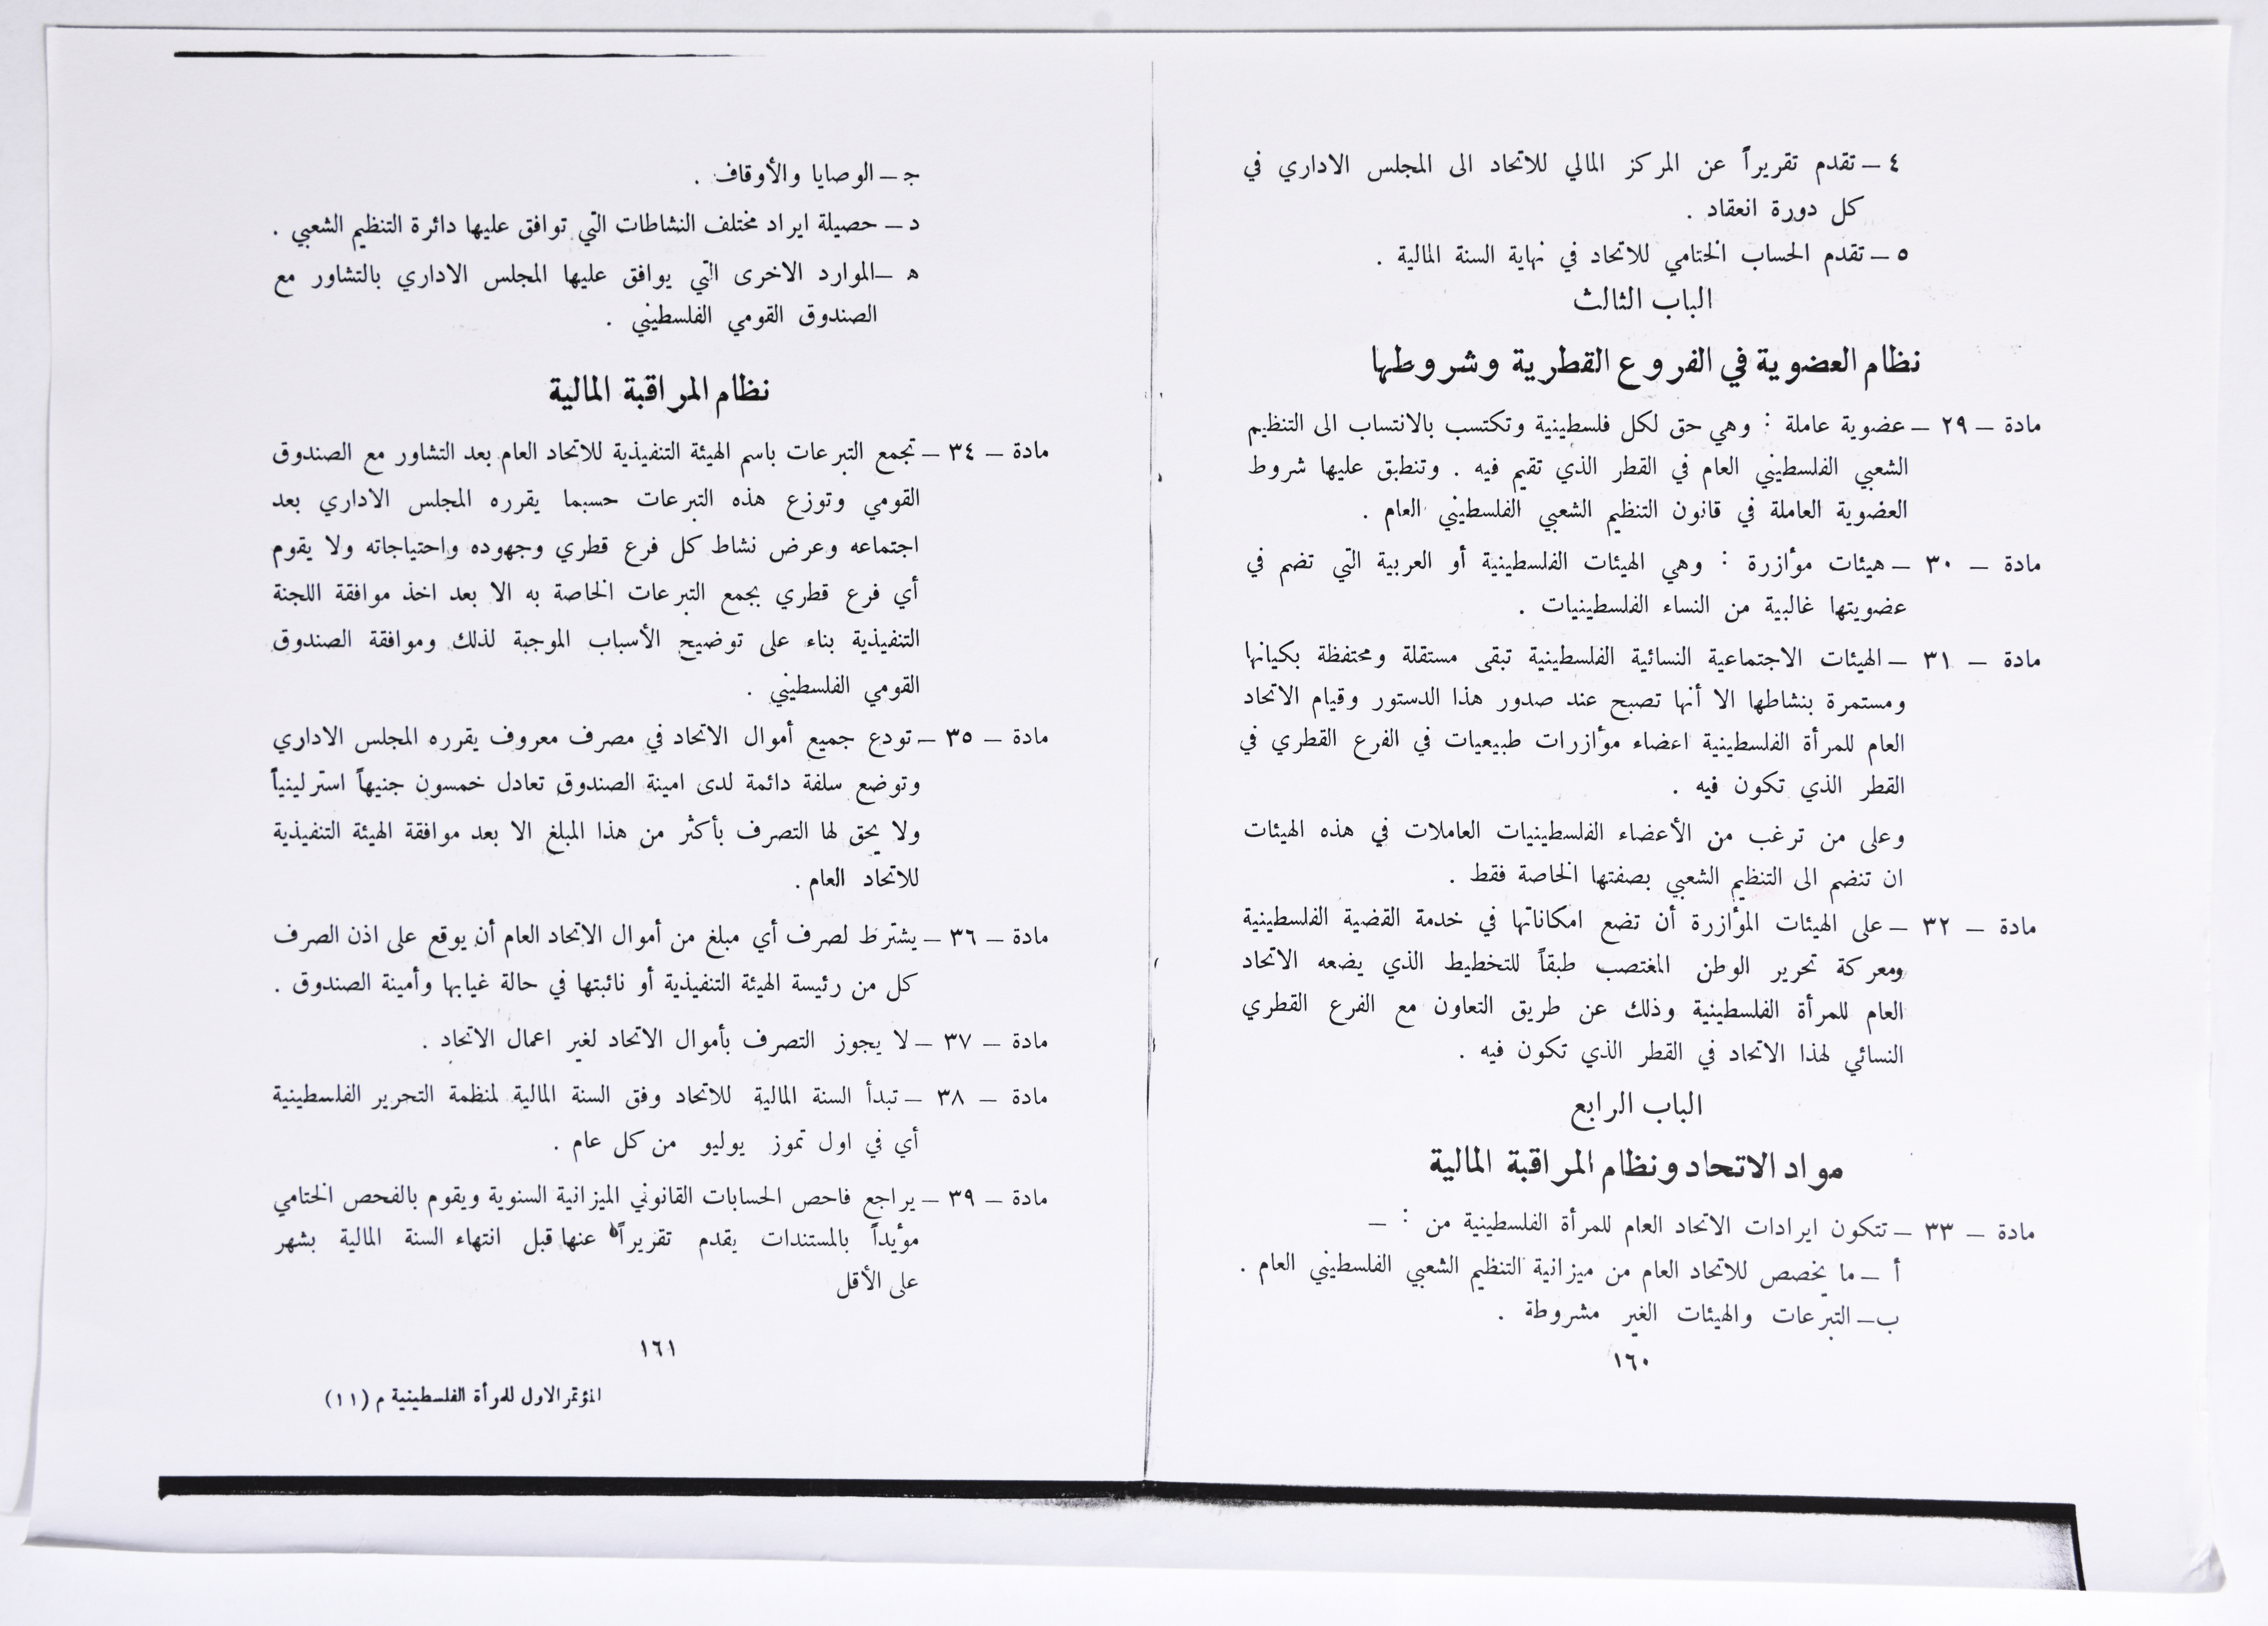 ٤ – تقدم تقريراً عن المركز المالي للاتحاد الى المجلس الاداري في
كل دورة انعقاد .
٥ – تقدم الحساب الختامي للاتحاد في نهاية السنة المالية .
الباب الثالث
نظام العضوية في الفروع القطرية وشروطها
مادة – ٢٩ – عضوية عاملة : وهي حق لكل فلسطينية وتكتسب بالانتساب الى التنظيم
الشعبي الفلسطيني العام في القطر الذي تقيم فيه . وتنطبق عليها شروط
العضوية العاملة في قانون التنظيم الشعبي الفلسطيني العام .
مادة – ٣٠ – هيئات مؤازرة : وهي الهيئات الفلسطينية أو العربية التي تضم في
عضويتها غالبية من النساء الفلسطينيات .
مادة – ٣١ – الهيئات الاجتماعية النسائية الفلسطينية تبقى مستقلة ومحتفظة بكيانها
ومستمرة بنشاطها الا أنها تصبح عند صدور هذا الدستور وقيام الاتحاد
العام للمرأة الفلسطينية اعضاء مؤازرات طبيعيات في الفرع القطري في
القطر الذي تكون فيه .
وعلى من ترغب من الأعضاء الفلسطينيات العاملات في هذه الهيئات
ان تنضم الى التنظيم الشعبي بصفتها الخاصة فقط .
مادة – ٣٢ – على الهيئات المؤازرة أن تضع امكاناتها في خدمة القضية الفلسطينية
ومعركة تحرير الوطن المغتصب طبقاً للتخطيط الذي يضعه الاتحاد
العام للمرأة الفلسطينية وذلك عن طريق التعاون مع الفرع القطري
النسائي لهذا الاتحاد في القطر الذي تكون فيه .
الباب الرابع
مواد الاتحاد ونظام المراقبة المالية
مادة – ٣٣ – تتكون ايرادات الاتحاد العام للمرأة الفلسطينية من : –
أ – ما يخصص للاتحاد العام من ميزانية التنظيم الشعبي الفلسطيني العام .
ب – التبرعات والهيئات الغير مشروطة .
١٦٠
ج – الوصايا والأوقاف .
د – حصيلة ايراد مختلف النشاطات التي توافق عليها دائرة التنظيم الشعبي .
ه – الموارد الاخرى التي يوافق عليها المجلس الاداري بالتشاور مع
الصندوق القومي الفلسطيني .
نظام المراقبة المالية
مادة – ٣٤ – تجمع التبرعات باسم الهيئة التنفيذية للاتحاد العام بعد التشاور مع الصندوق
القومي وتوزع هذه التبرعات حسبما يقرره المجلس الاداري بعد
اجتماعه وعرض نشاط كل فرع قطري وجهوده واحتياجاته ولا يقوم
أي فرع قطري بجمع التبرعات الخاصة به الا بعد اخذ موافقة اللجنة
التنفيذية بناء على توضيح الأسباب الموجبة لذلك وموافقة الصندوق
القومي الفلسطيني .
مادة – ٣٥ – تودع جميع أموال الاتحاد في مصرف معروف يقرره المجلس الاداري
وتوضع سلفة دائمة لدى امينة الصندوق تعادل خمسون جنيهاً استرلينياً
ولا يحق لها التصرف بأكثر من هذا المبلغ الا بعد موافقة الهيئة التنفيذية
للاتحاد العام .
مادة – ٣٦ – يشترط لصرف أي مبلغ من أموال الاتحاد العام أن يوقع على اذن الصرف
كل من رئيسة الهيئة التنفيذية أو نائبتها في حالة غيابها وأمينة الصندوق .
مادة – ٣٧ – لا يجوز التصرف بأموال الاتحاد لغير اعمال الاتحاد .
مادة – ٣٨ – تبدأ السنة المالية للاتحاد وفق السنة المالية لمنظمة التحرير الفلسطينية
أي في اول تموز يوليو من كل عام .
مادة – ٣٩ – يراجع فاحص الحسابات القانوني الميزانية السنوية ويقوم بالفحص الختامي
مؤيداً بالمستندات يقدم تقريراً عنها قبل انتهاء السنة المالية بشهر
على الأقل
١٦١
المؤتمر الاول للمرأة الفلسطينية م (١١)